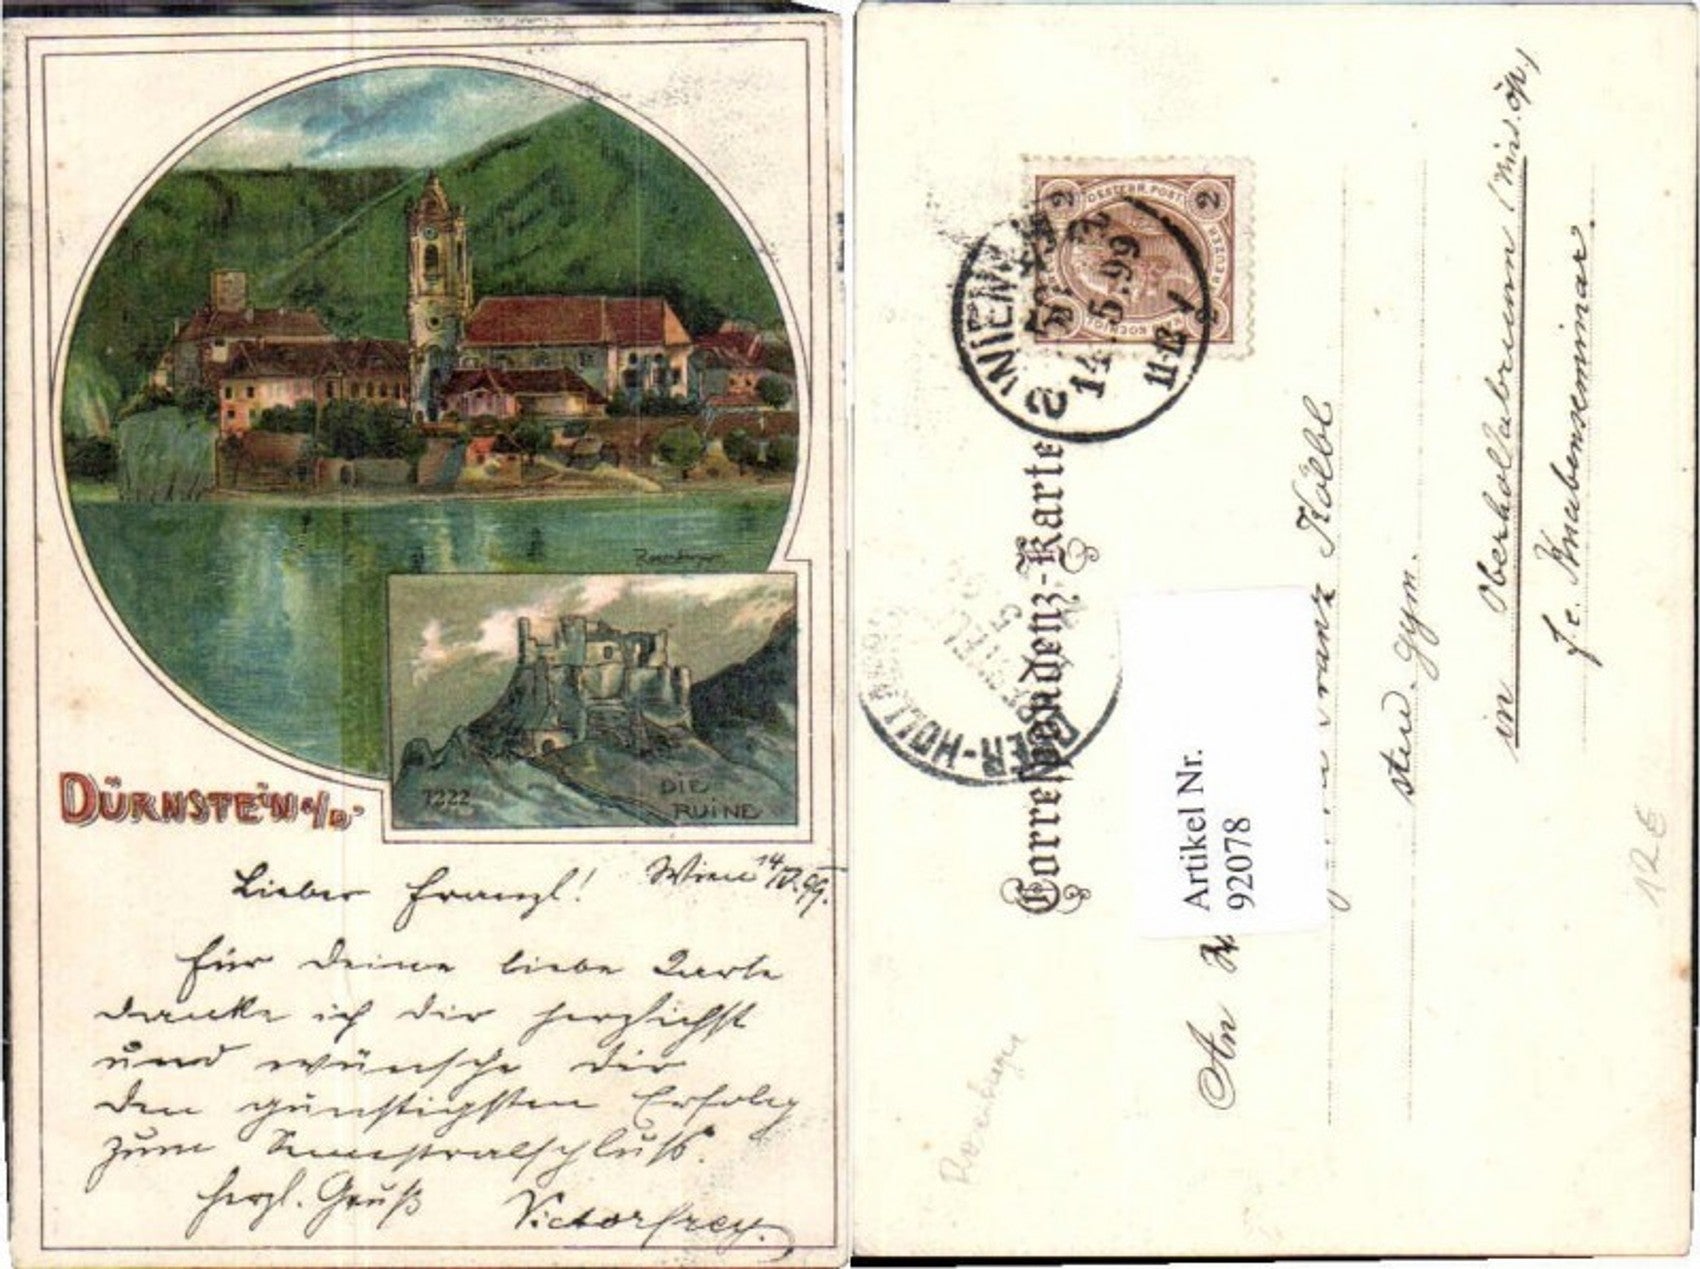 Rosenberger
7222
DIE
RUINE
DÜRNSTEIN a/D.
Wien 14/V. 99.
Lieber Franzl!
Für Deine liebe Karte
danke ich dir herzlichst
und wünsche dir
den günstigsten Erfolg
zum Semestralschluß.
herzl. Gruß Victor Frey.
2 OESTERR. POST 2
WIEN
14.5.99
11-12 V
Correspondenz-Karte
OBER-HOLLABRUNN
An Franz Kölbl
stud. gym.
in Oberhollabrunn (Nied. öst.)
f. e. Knabenseminar.
Artikel Nr.
92078
12 €
Rosenberger